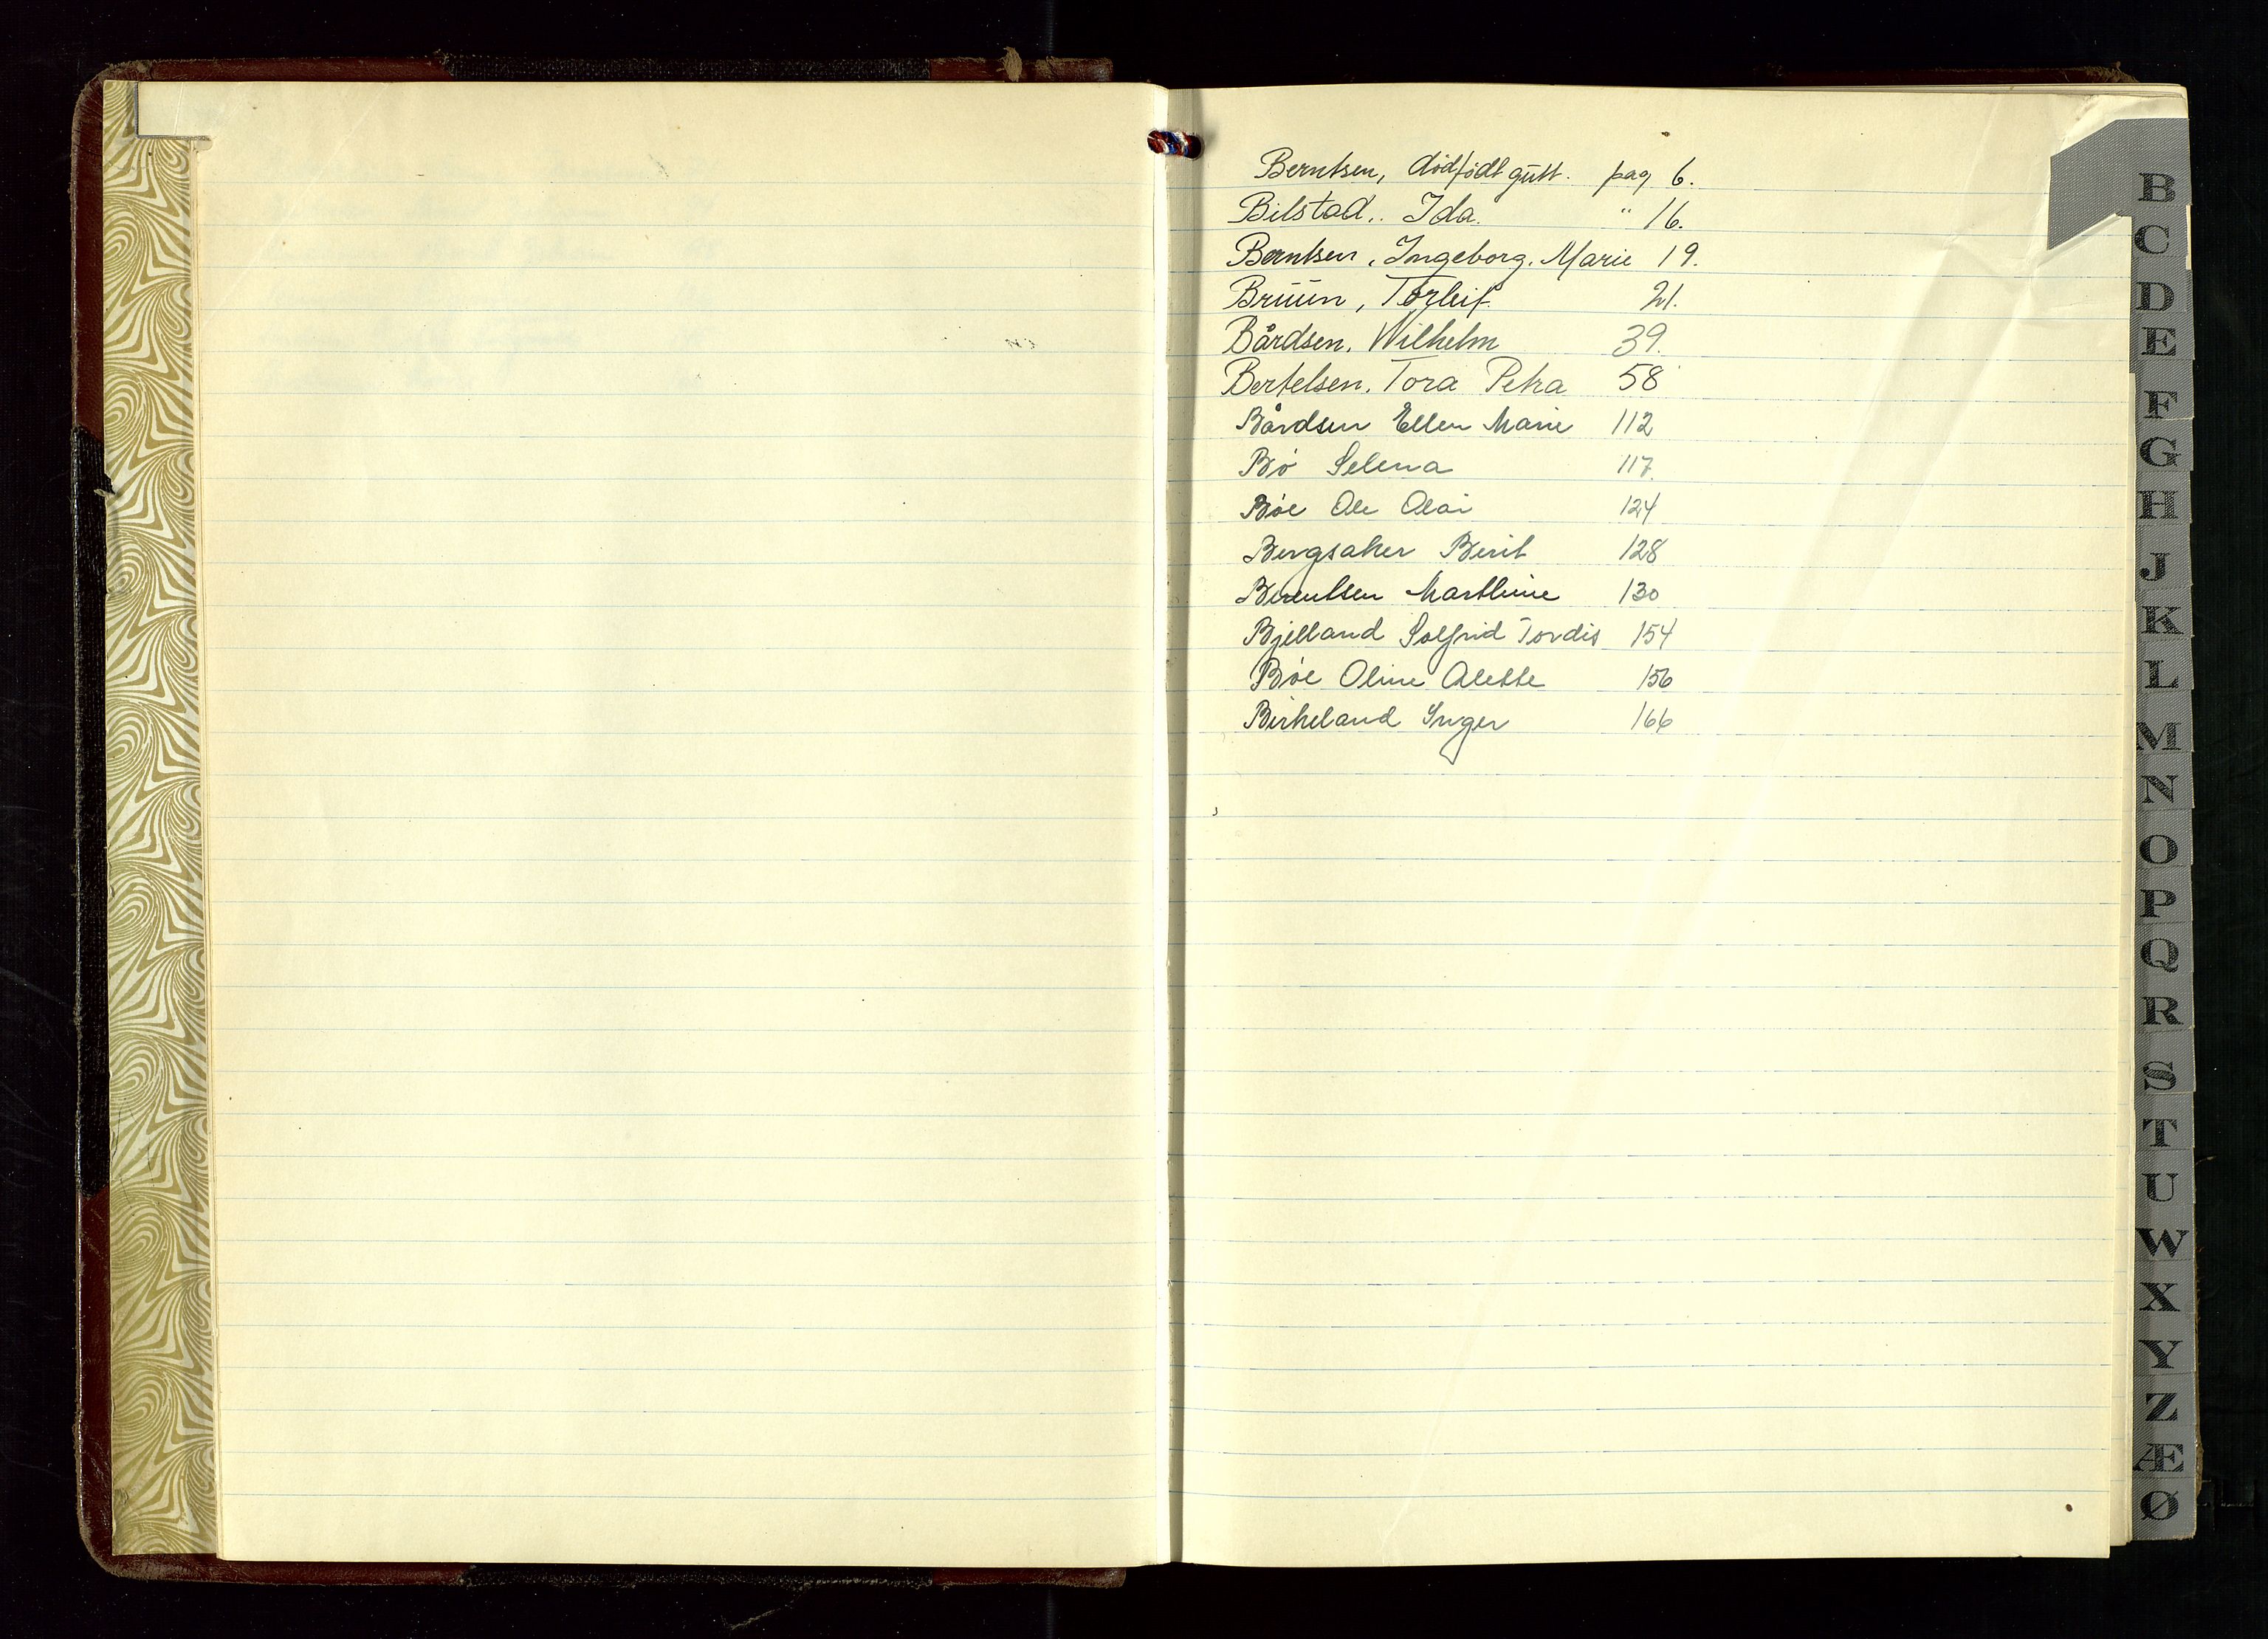 Berntsen, dødfødt gutt. pag 6.
Bilstad, Ida. " 16.
Berntsen, Ingeborg, Marie 19.
Bruun, Torleif 21.
Bårdsen, Wilhelm 39.
Bertelsen, Tora Petra 58
Bårdsen Ellen Marie 112
Bø Selena 117.
Bøe Ole Olai 124
Bergsaker Berit 128
Berentsen Marthine 130
Bjelland Solfrid Tordis 154
Bøe Oline Alette 156
Birkeland Inger 166
B
C
D
E
F
G
H
J
K
L
M
N
O
P
Q
R
S
T
U
W
X
Y
Z
Æ
Ø